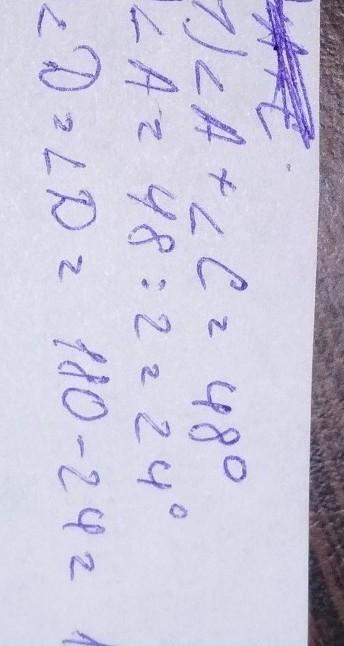 1) ∠A + ∠C = 48°
∠A = 48 : 2 = 24°
∠D = ∠D = 180 - 24 = 1